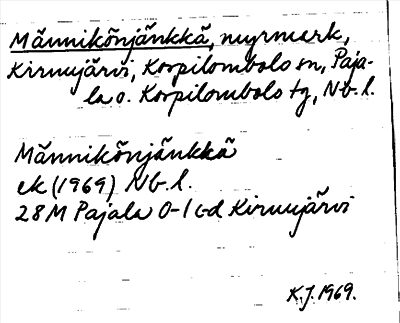 Männikönjänkkä, myrmark,
Kiruujärvi, Korpilombolo sn, Paja-
la o. Korpilombolo tg, Nb. l.
Männikönjänkkä
ek (1969) Nb. l.
28M Pajala 0-1 c-d Kiruujärvi
K.J. 1969.